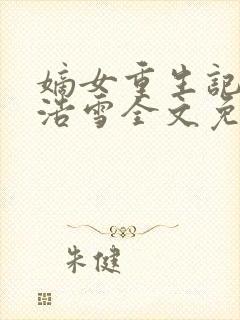 嫡女重生記
浩雪全文免
朱健